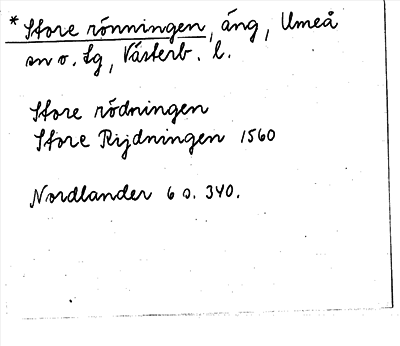 * Store rönningen, äng, Umeå
sn o. Lg, Västerb. l.
Store rödningen
Store Rijdningen 1560
Nordlander 6 s. 340.